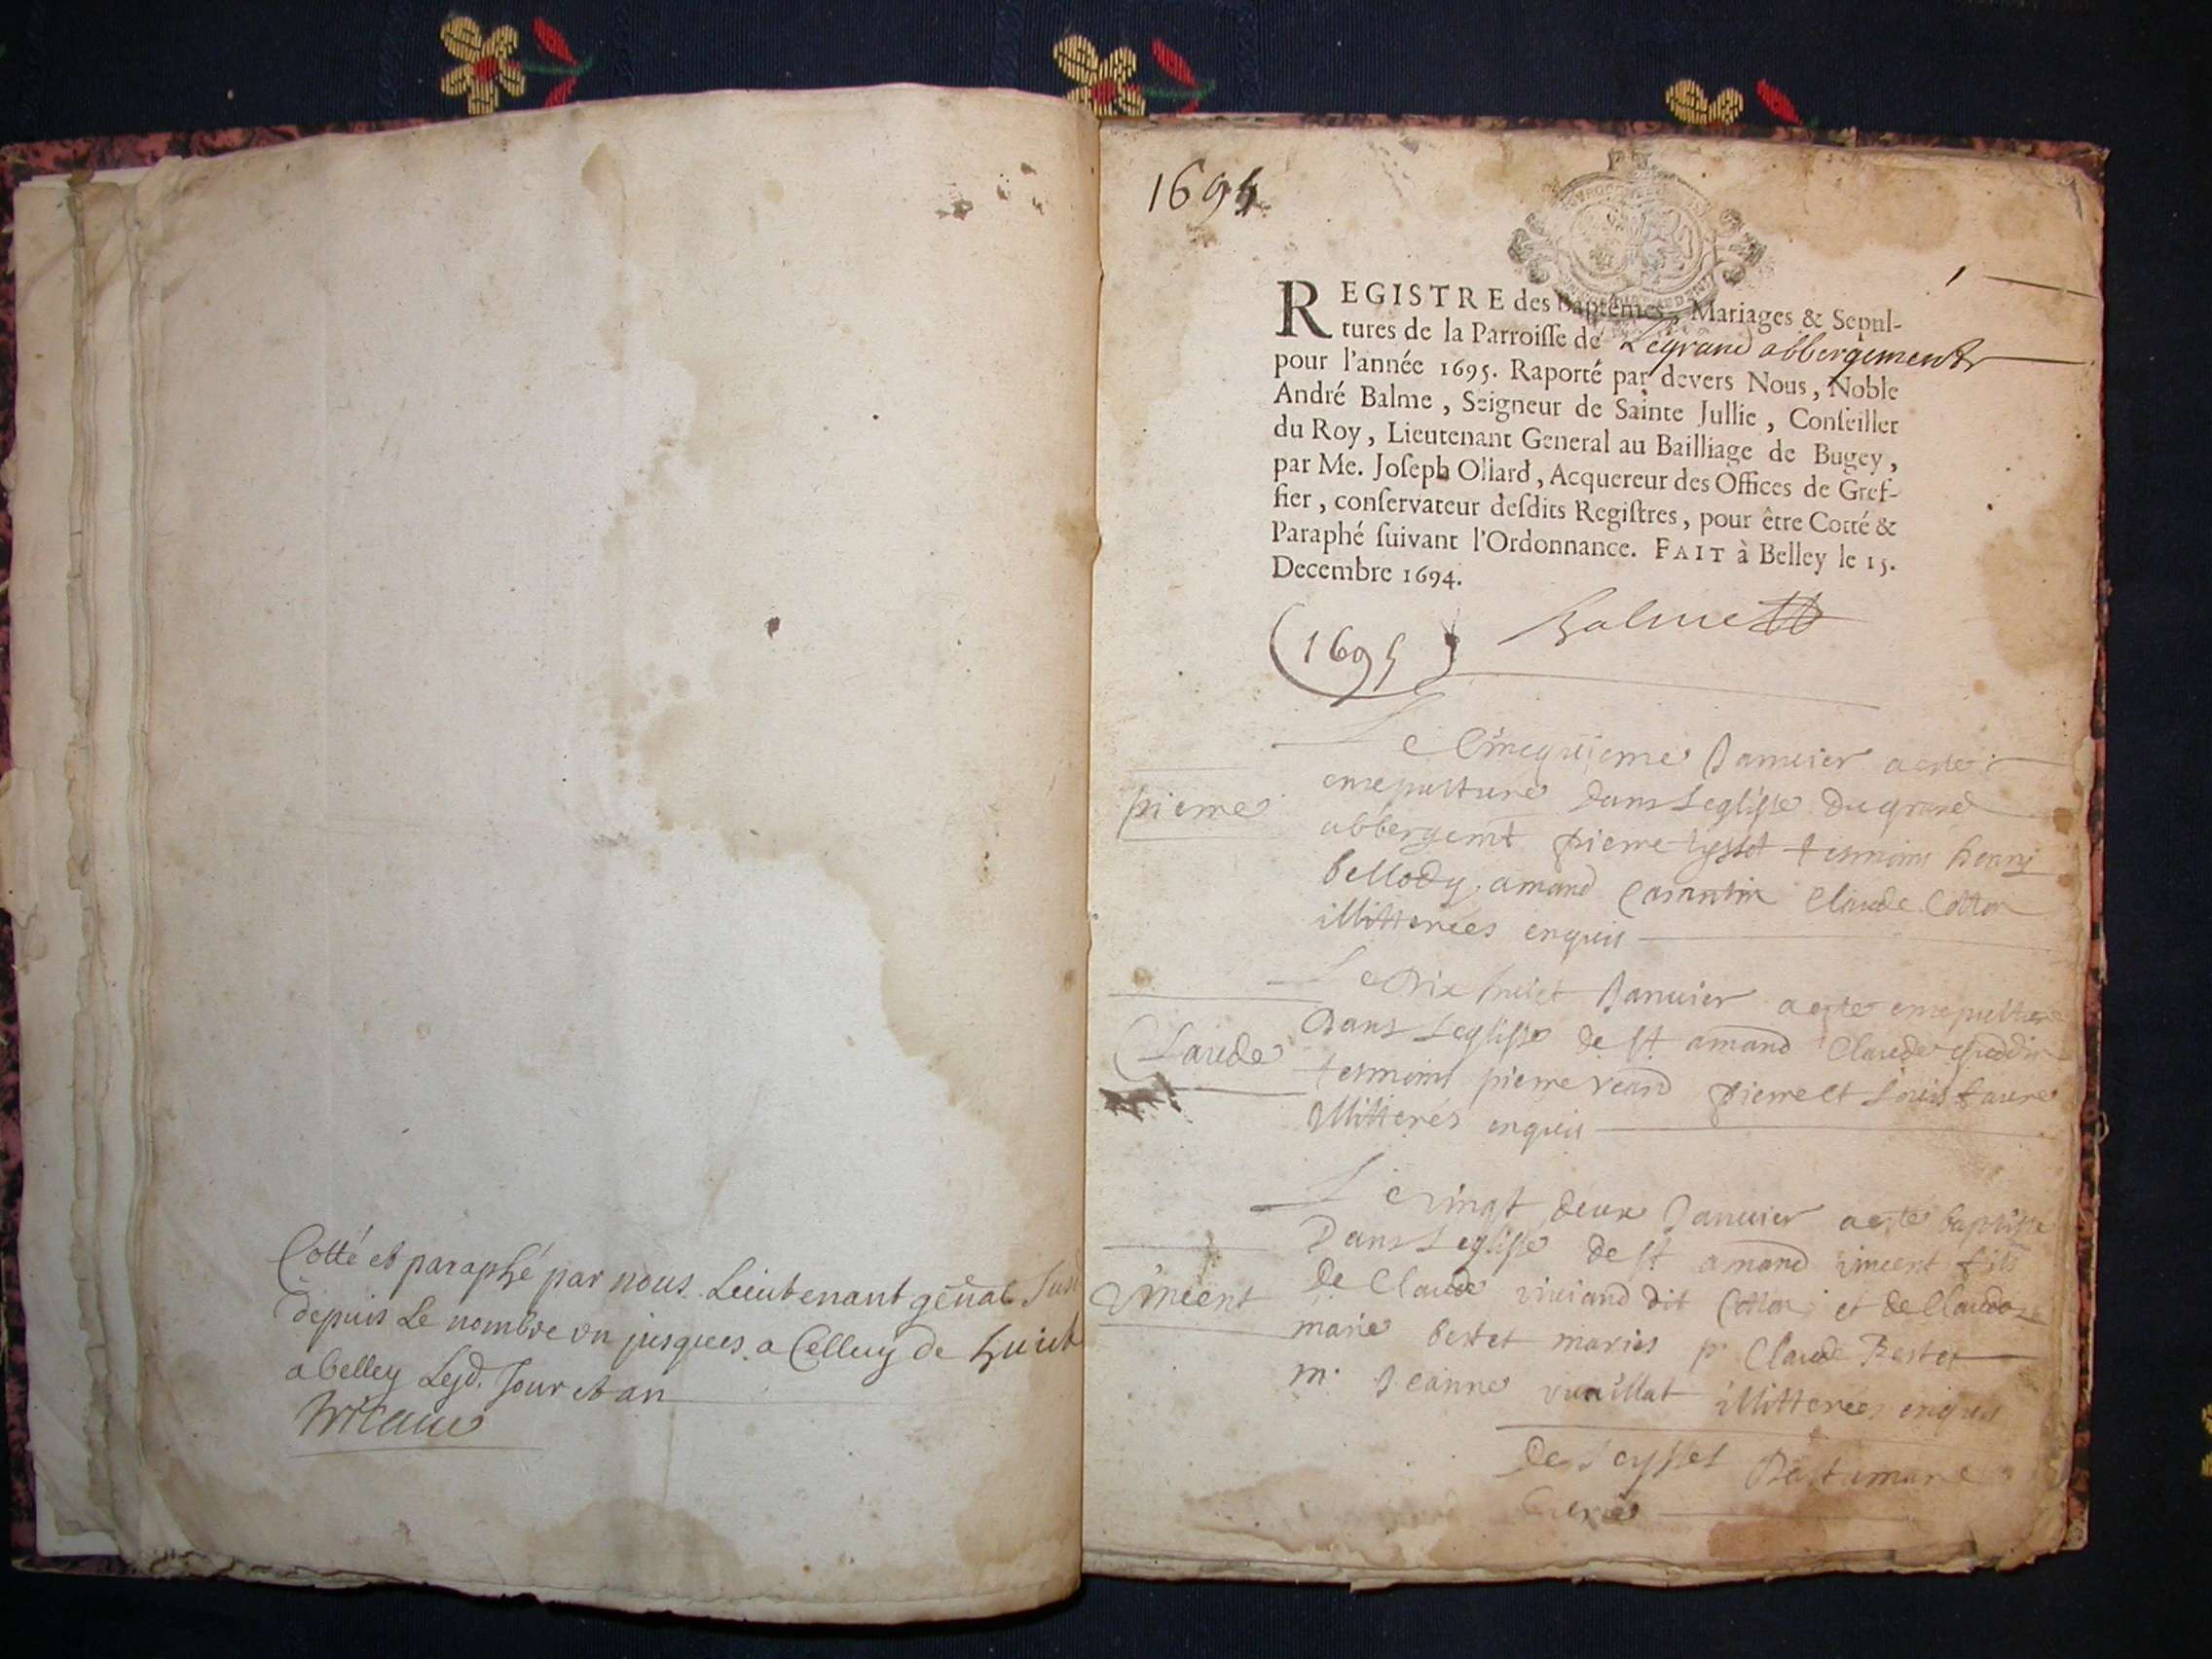 Cotté et paraphé par nous Lieutenant gñal Susd
depuis Le nombre un jusques a Celluy de huict
a belley Lesd. Jour et an
1695
REGISTRE des Baptêmes, Mariages & Sepul-
tures de la Parroiſſe de Legrand abbergement
pour l'année 1695. Raporté par devers Nous, Noble
André Balme, Seigneur de Sainte Jullie, Conſeiller
du Roy, Lieutenant General au Bailliage de Bugey,
par Me. Joſeph Ollard, Acquereur des Offices de Gref-
fier, conſervateur deſdits Regiſtres, pour être Cotté &
Paraphé ſuivant l'Ordonnance. FAIT à Belley le 15.
Decembre 1694.
Balme
(1695)
Le Cincquieme Januier a este
ensepulturé dans Leglisse du grand
pierre
abbergemt pierre tesmoins henry
bellody amand Claude Cotton
illitterées enquis
Le Dix huict Januier a este ensepulturé
Dans Leglisse de st amand Claude
Claude
tesmoins pierre pierre et Louis faure
illitterés enquis
Le vingt deux Januier a esté baptisé
Dans Leglisse de st amand vincent fils
vincent
de Claude viuiand dit Cotton et de Claudaz
marie bertet mariés p. Claude Bertet
m. Jeanne vuaillat illitterées enquis
De Seyssel
Curé